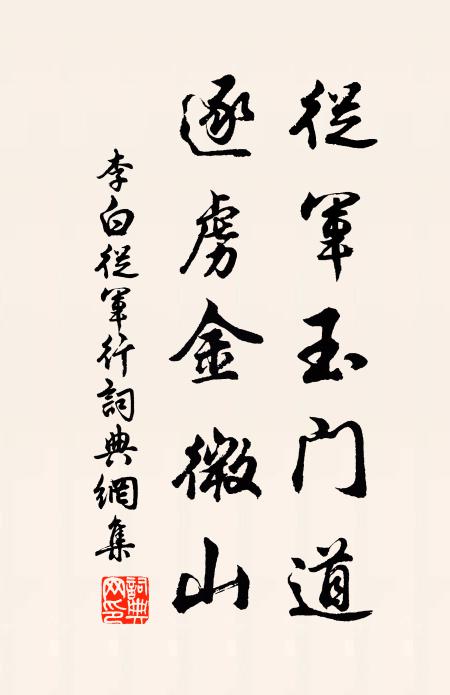 從軍玉門道
逐虜金微山
李白從軍行詞典網集
詞典網印